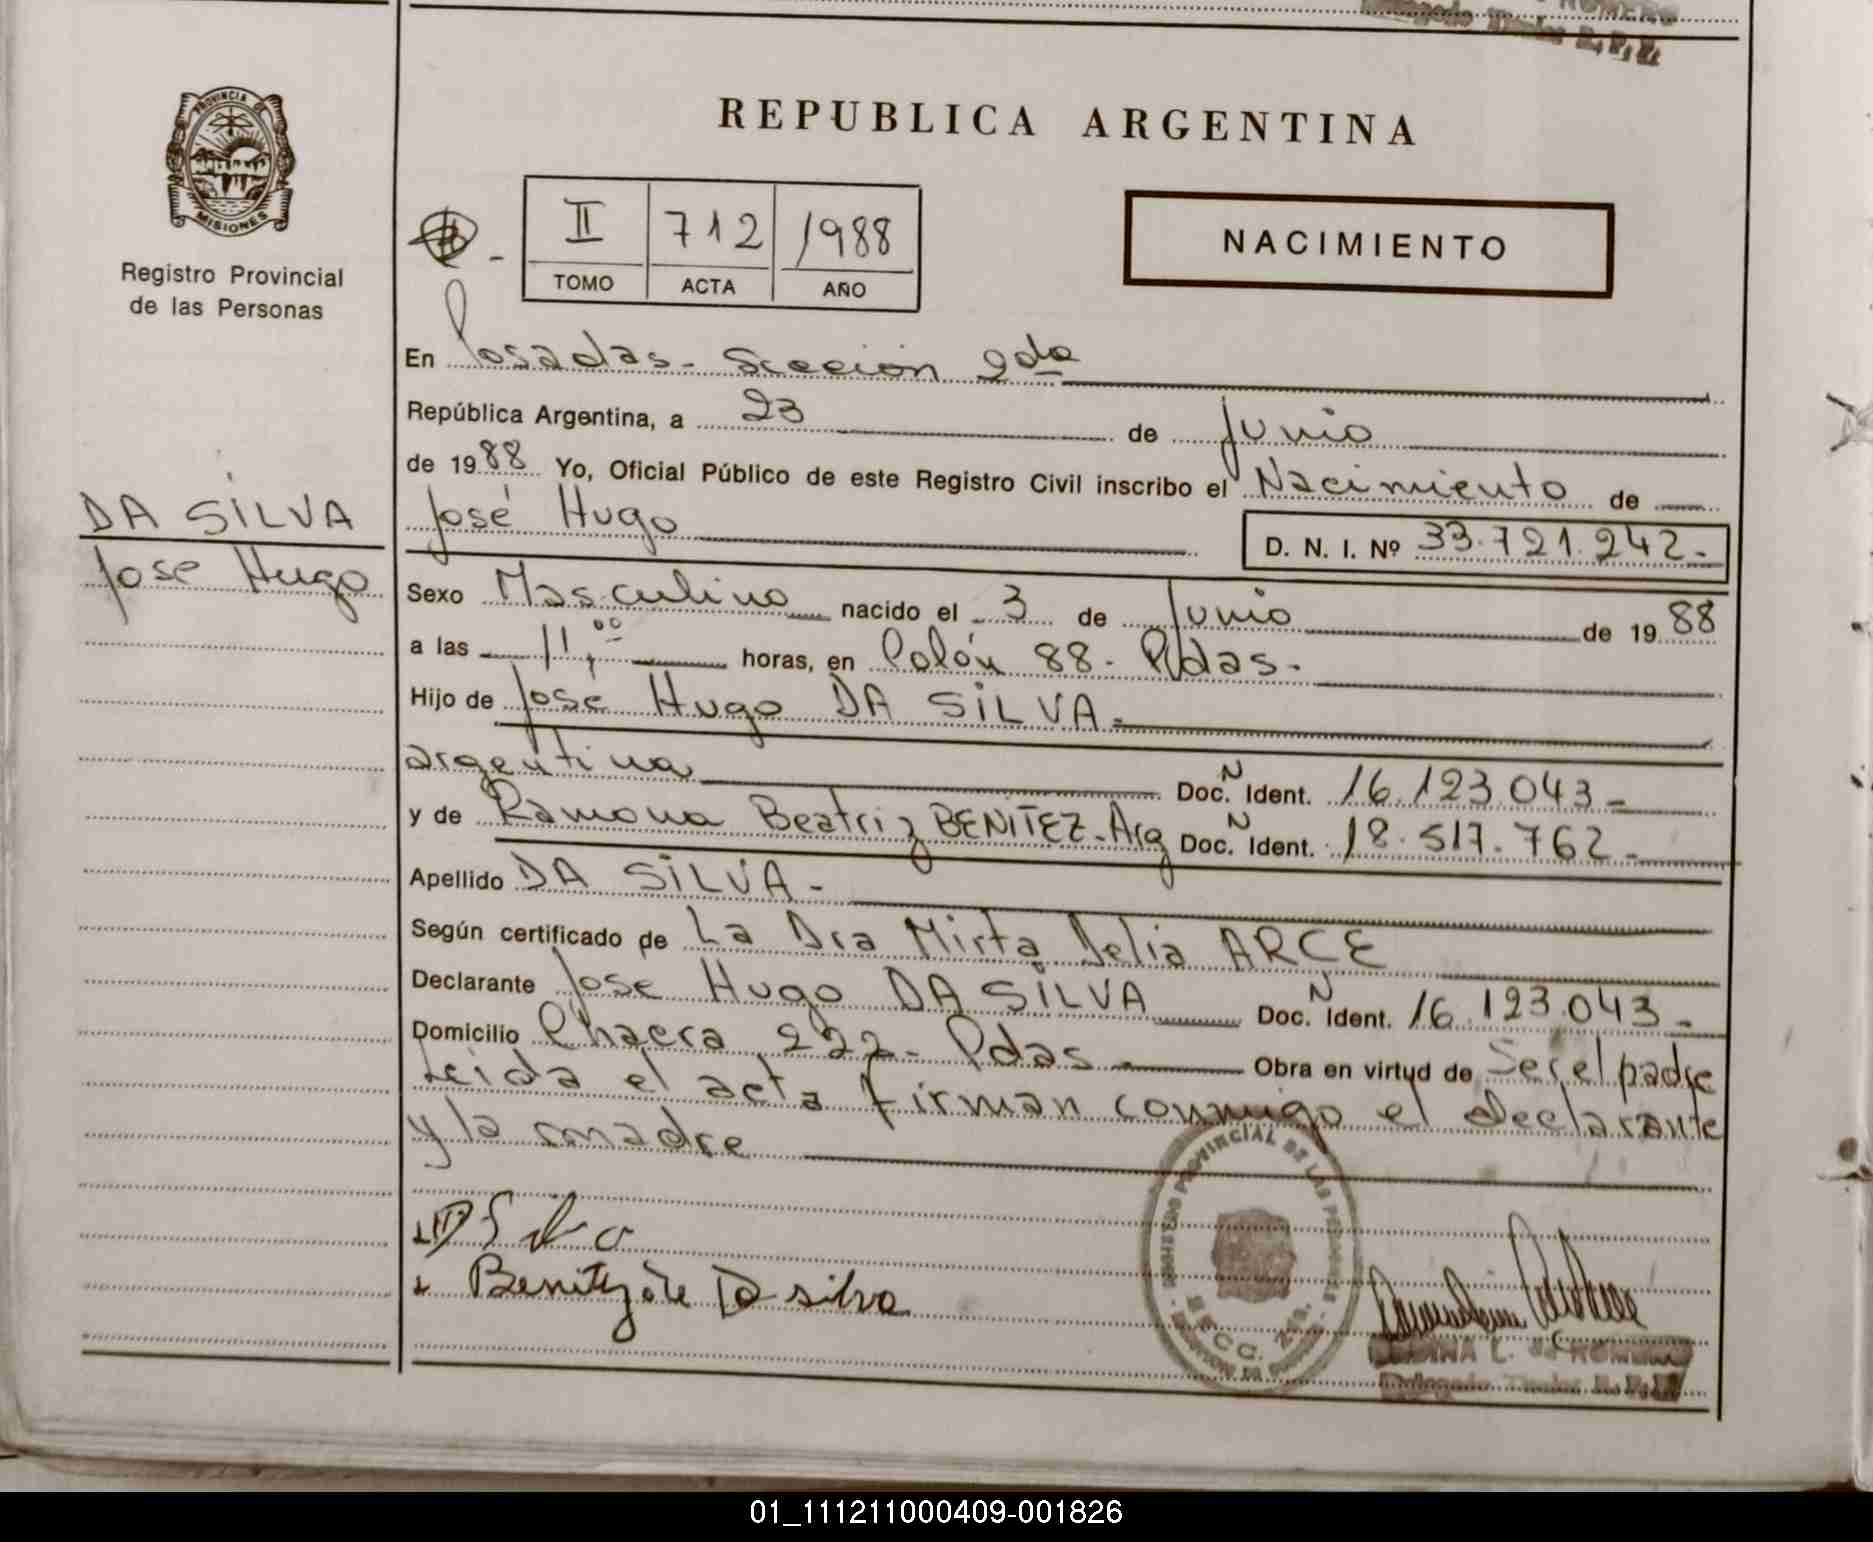 REPUBLICA ARGENTINA
PROVINCIA DE
MISIONES
Registro Provincial
de las Personas
II 712 1988
TOMO ACTA AÑO
NACIMIENTO
En Posadas - Sección 2da
República Argentina, a 23 de Junio
de 1988 Yo, Oficial Público de este Registro Civil inscribo el Nacimiento de
DA SILVA
José Hugo
D. N. I. Nº 33.721.242.-
Jose Hugo
Sexo Masculino nacido el 3 de Junio de 1988
a las 11,00 horas, en Colón 88 - Pdas.
Hijo de José Hugo DA SILVA.-
argentina Doc. N Ident. 16.123.043-
y de Ramona Beatriz BENITEZ - Arg Doc. N Ident. 18.517.762-
Apellido DA SILVA -
Según certificado de La Dra Mirta Delia ARCE
Declarante Jose Hugo DA SILVA Doc. N Ident. 16.123.043-
Domicilio Chacra 222 - Pdas Obra en virtud de Ser el padre
Leida el acta firman conmigo el declarante
y la madre
Benitez de Da silva
REGISTRO PROVINCIAL DE LAS PERSONAS
Delegado Titular R. P. P.
01_111211000409-001826